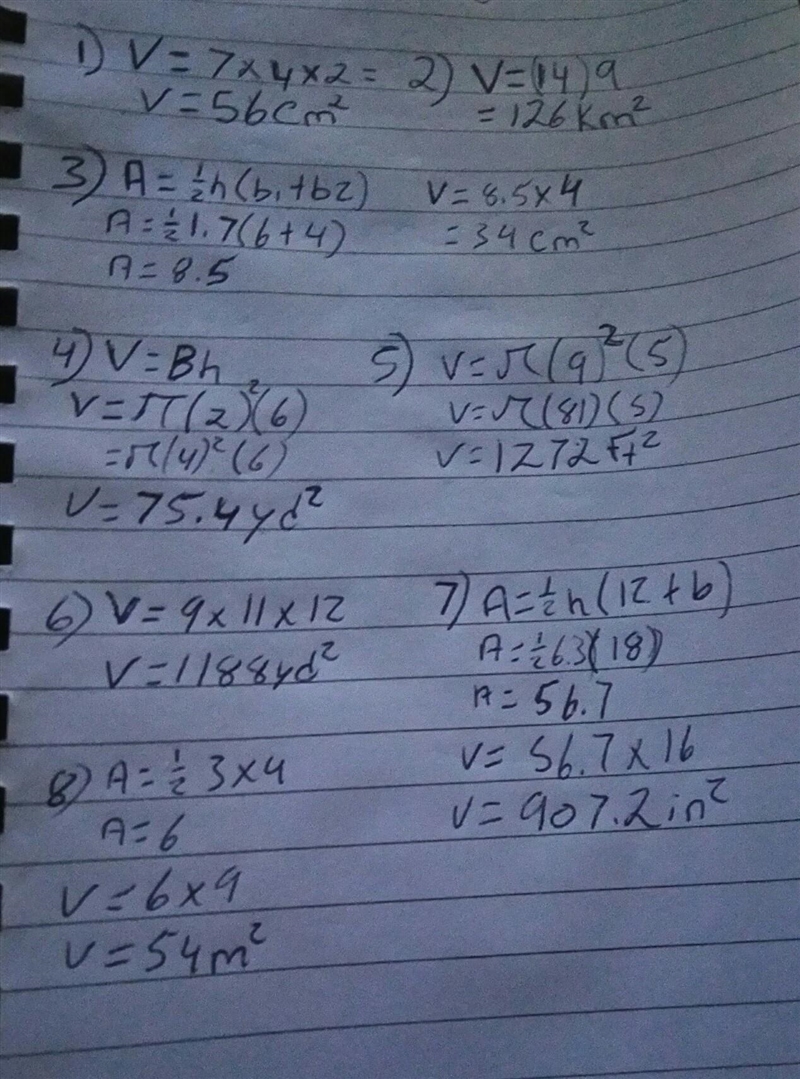 1) V = 7 x 4 x 2 =
V = 56 cm²
2) V = (14) 9
= 126 Km²
3) A = ½ h (b₁ + b2)
A = ½ 1.7 (6 + 4)
A = 8.5
V = 8.5 x 4
= 34 cm²
4) V = Bh
V = π (2)² (6)
= π (4)² (6)
V = 75.4 yd²
5) V = π (9)² (5)
V = π (81) (5)
V = 1272 Ft²
6) V = 9 x 11 x 12
V = 1188 yd²
7) A = ½ h (12 + 6)
A = ½ 6.3 (18)
A = 56.7
V = 56.7 x 16
V = 907.2 in²
8) A = ½ 3 x 4
A = 6
V = 6 x 9
V = 54 m²